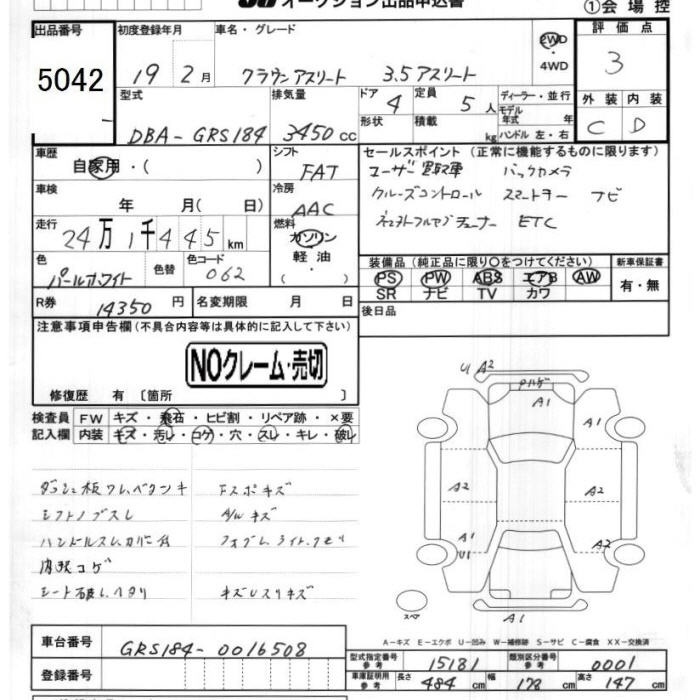 オークション出品申込書
①会場控
出品番号
5042
初度登録年月
19 2月
車名・グレード
クラウンアスリート 3.5アスリート
2WD
・
4WD
評価点
3
外装 内装
C D
型式
DBA-GRS184
排気量
3450cc
ドア
4
形状
定員
5人
積載
kg
ディーラー・並行
モデル
年式 年
ハンドル 左・右
車歴
自家用・( )
車検
年 月( 日)
走行
24万1千445km
色
パールホワイト
色替
色コード
062
シフト
FAT
冷房
AAC
燃料
ガソリン
軽油
・( )
セールスポイント(正常に機能するものに限ります)
ユーザー買取車 バックカメラ
クルーズコントロール スマートキー ナビ
ETC
装備品(純正品に限り○をつけてください)
PS PW ABS エアB AW
SR ナビ TV カワ
新車保証書
有・無
R券
14350円
名変期限 月 日
後日品
注意事項申告欄(不具合内容等は具体的に記入して下さい)
NOクレーム・売切
修復歴 有 〔箇所 〕
検査員
記入欄
FW キズ・飛石・ヒビ割・リペア跡・×要
内装 キズ・汚レ・コゲ・穴・スレ・キレ・破レ
シフトノブスレ
内張コゲ
シート破レ、ヘタリ
Fスポキズ
A/Wキズ
U A2
A1
A1
A1
A2
A2
A2
A1
U1
A2
スペア
A1
A-キズ E-エクボ U-凹み W-補修跡 S-サビ C-腐食 XX-交換済
車台番号
GRS184-0016508
登録番号
型式指定番号
参考
15181
類別区分番号
参考
0001
車庫証明用
参考
長さ 484cm 幅 178cm 高さ 147cm